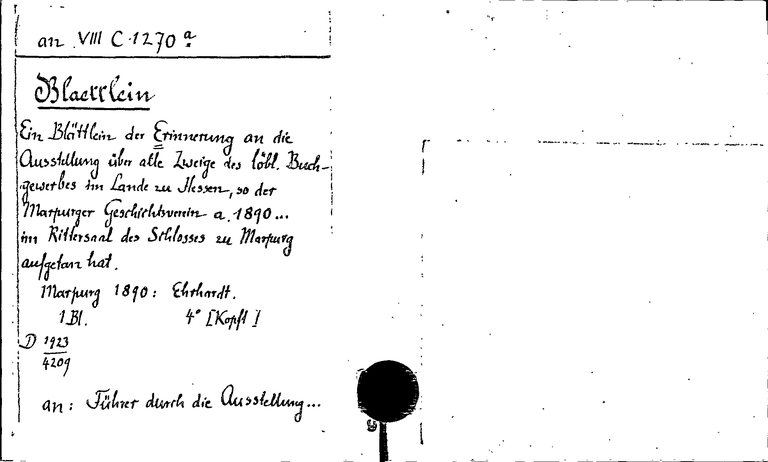 an VIII C 1270 a
Blaettlein
Ein Blättlein der Erinnerung an die
Ausstellung über alle Zweige des löbl. Buch-
gewerbes im Lande zu Hessen, so der
Marpurger Geschichtsverein a. 1890...
im Rittersaal des Schlosses zu Marpurg
aufgetan hat.
Marpurg 1890: Ehrhardt.
1 Bl. 4° [Kopft]
D 1923
4209
an: Führer durch die Ausstellung...